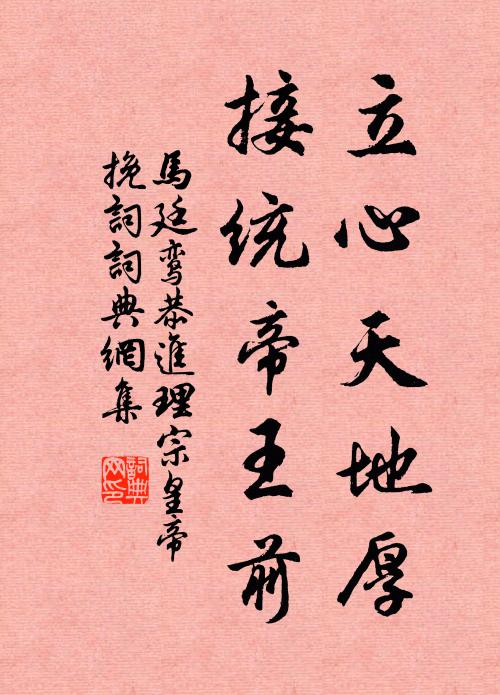 立心天地厚
接统帝王前
馬廷鸾恭進理宗皇帝
挽詞詞典網集
詞典网印